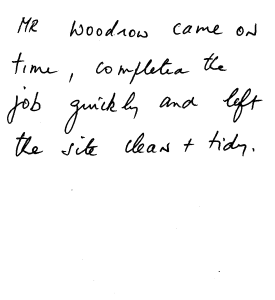 MR Woodrow came on
time, completed the
job quickly and left
the site clean + tidy.